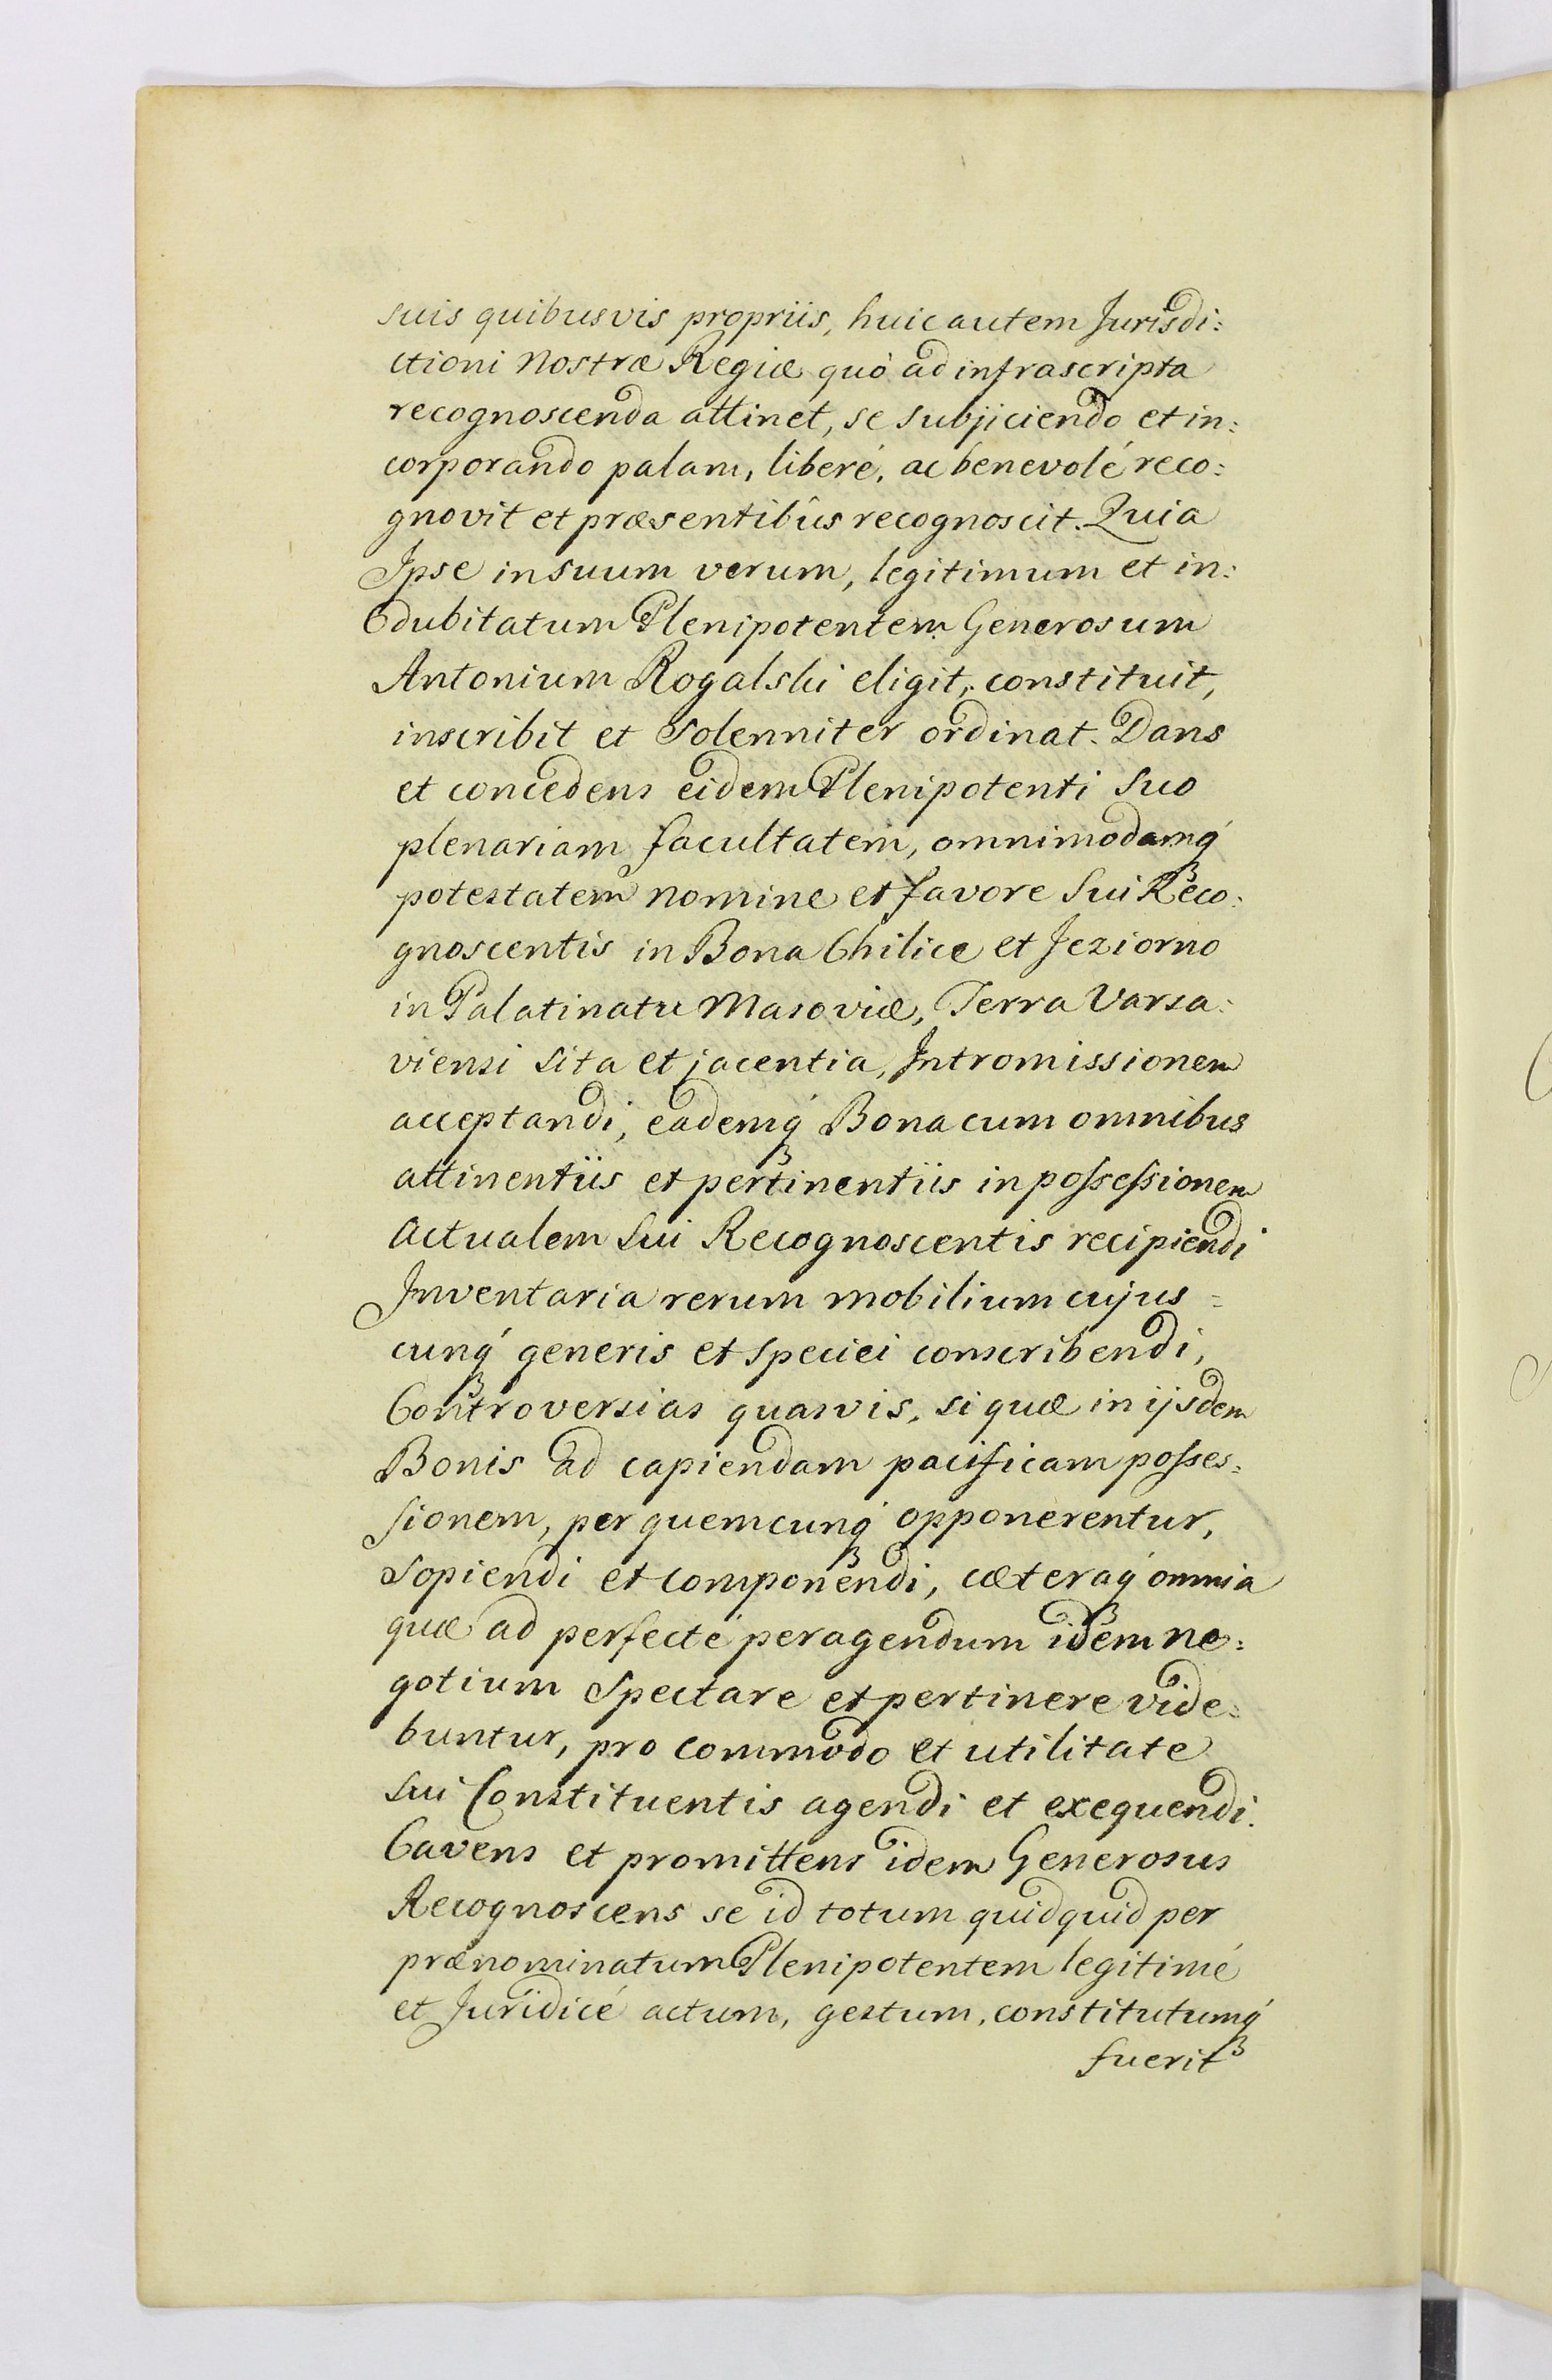 suis quibusvis propriis, huic autem Jurisdi:
ctioni Nostræ Regiæ quò ad infrascripta
recognoscenda attinet, se subjiciendo et in:
corporando palam, liberé, ac benevolé reco:
gnovit et præsentibûs recognoscit. Quia
Ipse in suum verum, legitimum et in:
dubitatum Plenipotentem Generosum
Antonium Rogalski eligit, constituit,
inscribit et solenniter ordinat. Dans
et concedens eidem Plenipotenti suo
plenariam facultatem, omnimodamq́
potestatem nomine et favore sui Reco:
gnoscentis in Bona Chilice et Jeziorno
in Palatinatu Masoviæ, Terra Varsa:
viensi sita et jacentia, Intromissionem
acceptandi, eademq́ Bona cum omnibus
attinentiis et pertinentiis in possessionem
actualem sui Recognoscentis recipiendi
Inventaria rerum mobilium cujus =
cunq́ generis et speciei conscribendi,
Controversias quasvis, si quæ in ijsdem
Bonis ad capiendam pacificam posses:
sionem, per quemcunq́ opponerentur,
sopiendi et componendi, cæteraq́ omnia
quæ ad perfecté peragendum idem ne:
gotium spectare et pertinere vide:
buntur, pro commodo et utilitate
sui Constituentis agendi et exequendi.
Cavens et promittens idem Generosus
Recognoscens se id totum quidquid per
prænominatum Plenipotentem legitimé
et Juridicé actum, gestum, constitutumq́
fuerit